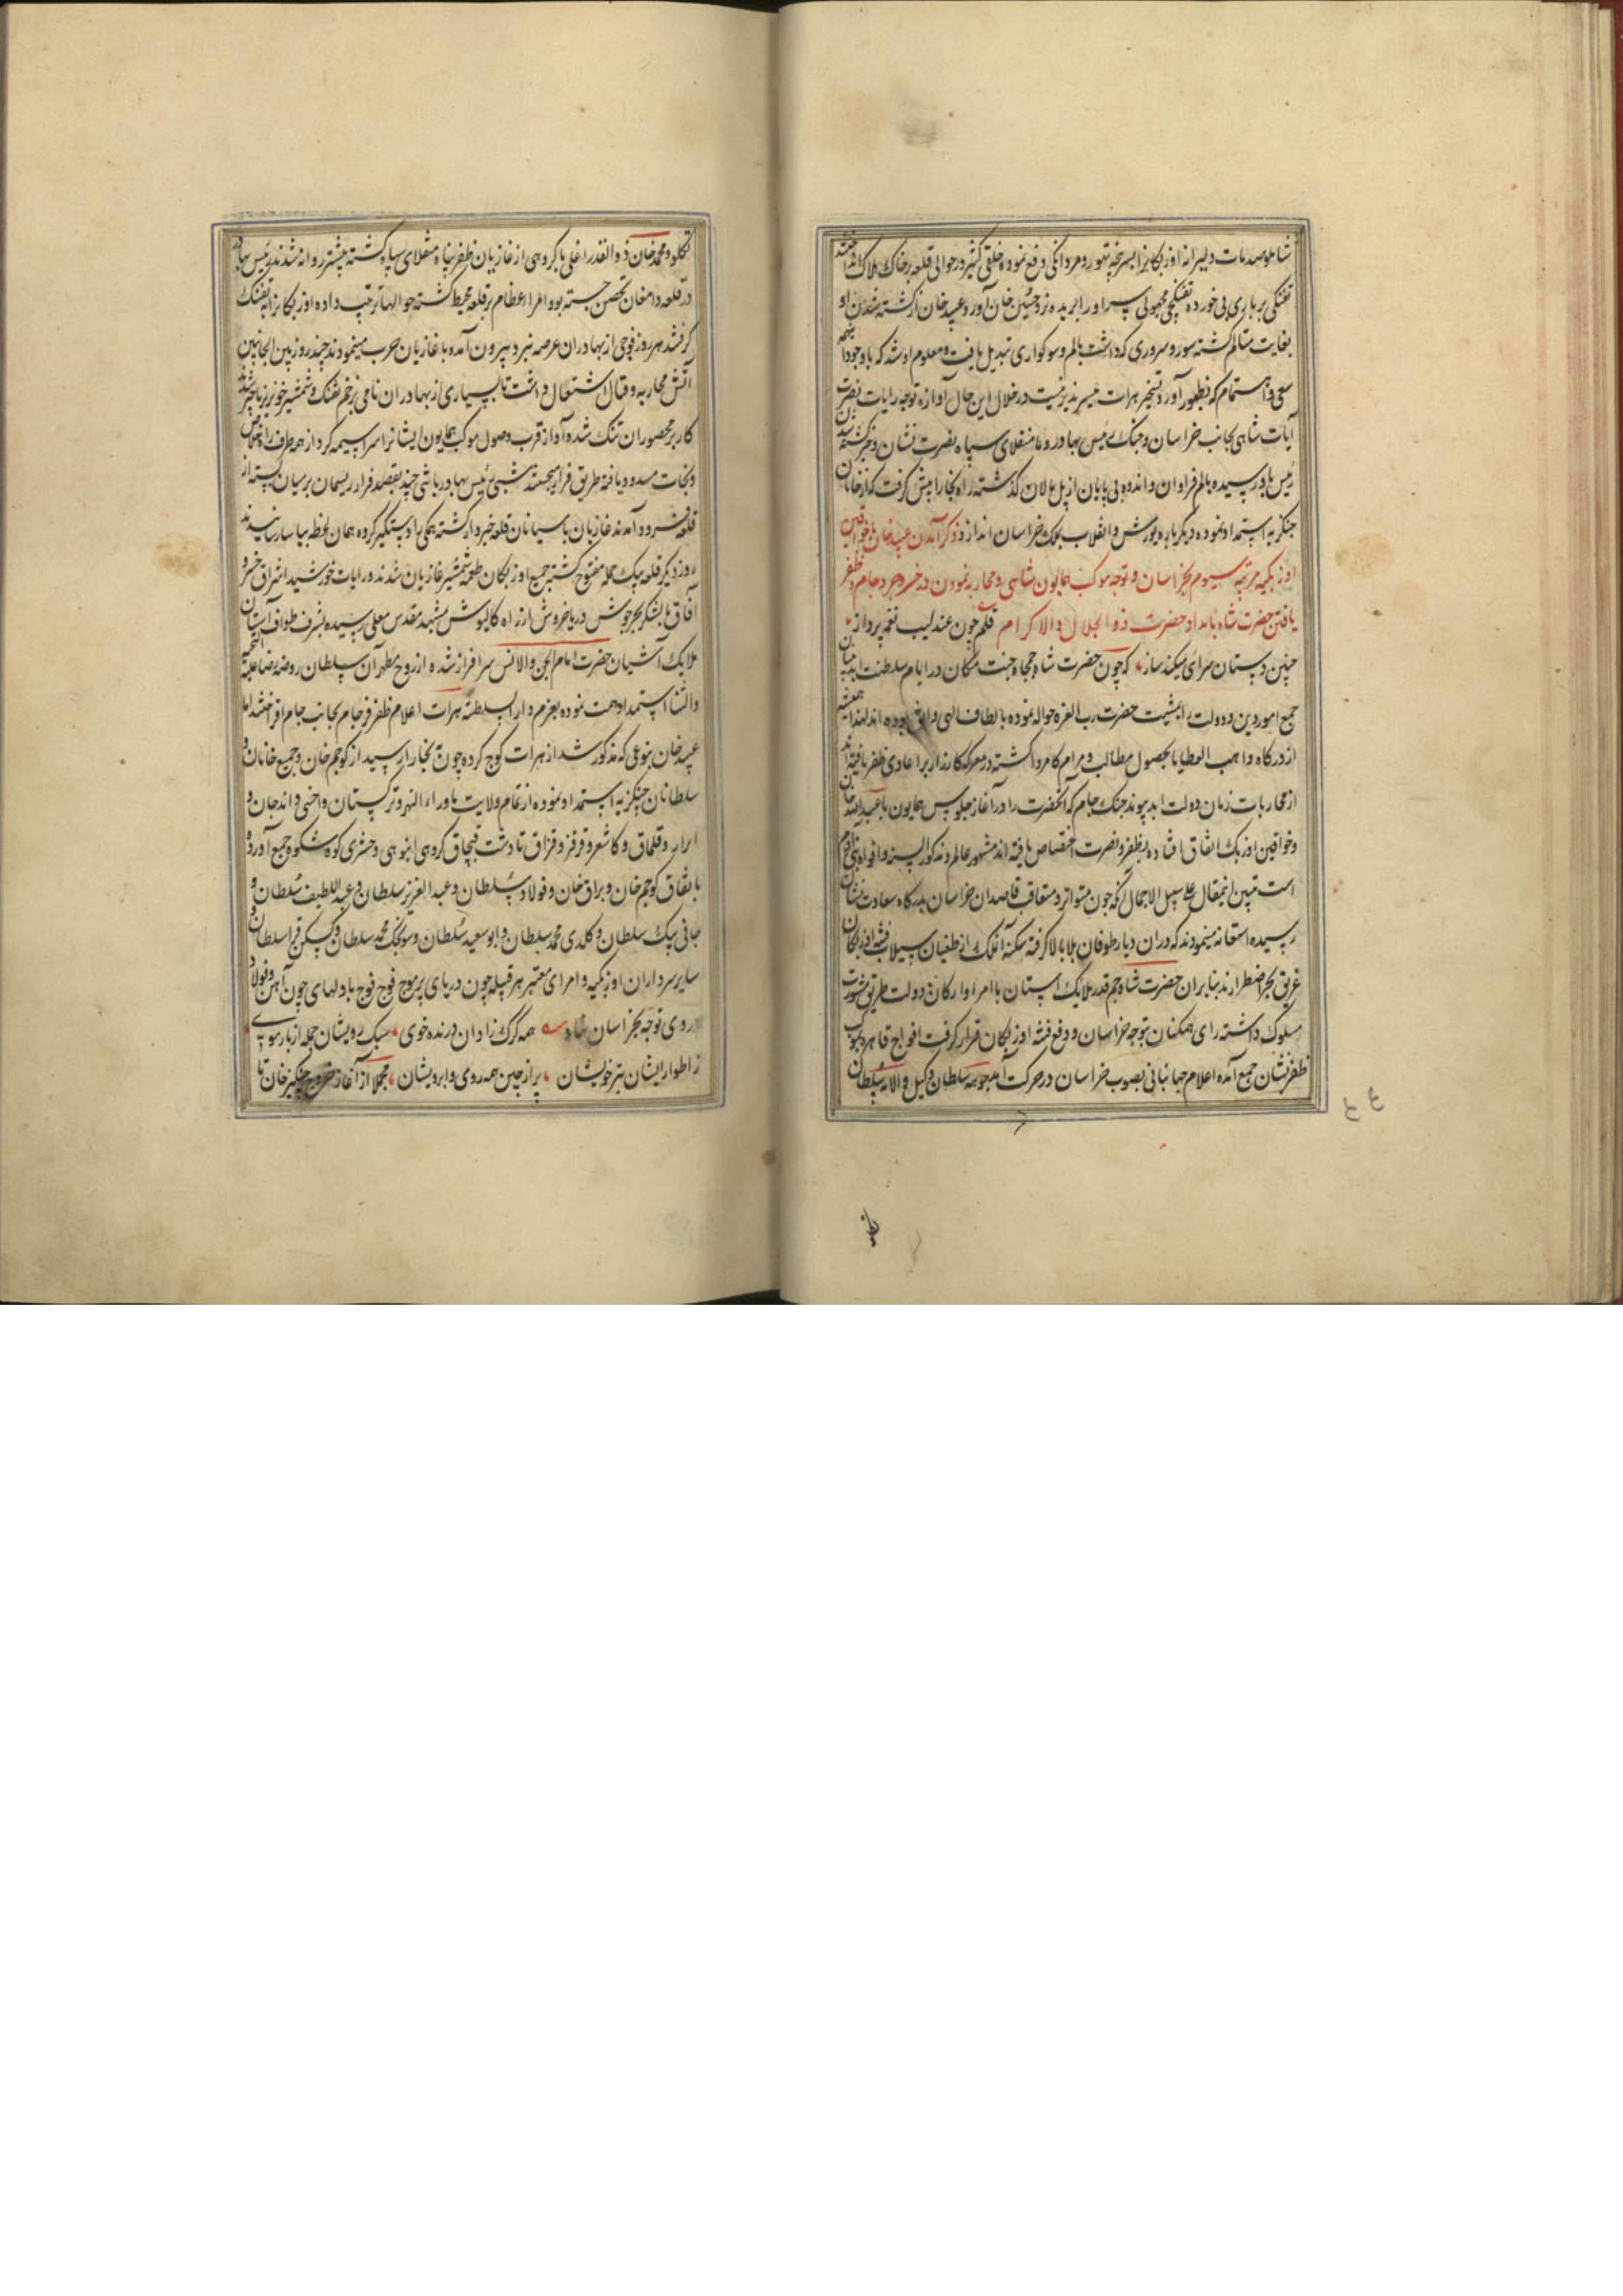 شاملو صدمات دلیرانه اوزبکان را بسرپنجه تهور و مردانکی دفع نموده خلقی کثیر در حوالی قلعه بر خاک هلاک انداختند
تفنکی بر یاری بی خورده تفنکچی مجهولی سر او را بریده نزد حسین خان آورد و عبید خان از کشته شدن او
بغایت متالم کشته سور و سروری که داشت بالم و سوکواری تبدیل یافت و معلوم او شد که باوجود آنهمه
سعی و اهتمام که بظهور آورد تسخیر هرات میسر پذیر نیست در خلال این حال آوازه توجه رایات نصرت
آیات شاهی بجانب خراسان و جنک رئیس بهادر و با منقلای سپاه نصرت نشان و خبر کشته شدن
رئیس باو رسیده بالم فراوان و اندوه بی پایان از پل مالان کذشته راه بخارا پیش کرفت که از خانان
جنکزیه استمداد نموده دیکر باره یورش و انقلاب بملک خراسان اندازد ذکر آمدن عبید خان با خواقین
اوزبکیه مرتبه سیوم بخراسان و توجه موکب همایون شاهی و محاربه نمودن در خسروجرد جام و ظفر
یافتن حضرت شاه بامداد حضرت ذو الجلال والاکرام قلم چون عندلیب نغمه پرداز
چنین دستان سرائی میکند ساز که چون حضرت شاه جمجاه جنت مکان در ایام سلطنت ابد بنیان
جمیع امور دین و دولت را بمشیت حضرت رب العزه حواله نموده بالطاف الهی واثق بوده اند لهذا همیشه
از درکاه واهب العطایا بحصول مطالب و مرام کامروا کشته در معرکه کارزار بر اعادی ظفر یافته اند
از محاربات زمان دولت ابد پیوند جنک جام که آنحضرت را در آغاز جلوس همایون با عبید الله خان
و خواقین اوزبک اتفاق افتاده بظفر و نصرت اختصاص یافته اند مشهور عالم و مذکور السنه و افواه بنی آدم
است تبیین اینمقال علی سبیل الاجمال آنکه چون متواتر و متعاقب قاصدان خراسان بدرکاه سعادت نشان
رسیده استغاثه مینمودند که در آن دیار طوفان بلا بالا کرفته سکنه آنملک از طغیان سیلاب فتنه اوزبکان
غریق بحر اضطرارند بنابران حضرت شاه جم قدر ملایک آستان با امرا و ارکان دولت طریق مشورت
مسلوک داشته رای همکنان بتوجه خراسان و دفع فتنه اوزبکان قرار کرفت افواج قاهره بموکب
ظفر نشان جمع آمده اعلام جهانبانی بصوب خراسان در حرکت آمد جوهه سلطان وکیل والامه سلطان
تکلو و محمد خان ذو القدر اغلی با کروهی از غازیان ظفر پناه منقلای سپاه کشته پیشتر روانه شدند رئیس بهادر
در قلعه دامغان تحصن جسته بود امراء عظام بر قلعه محیط کشته حوالها ترتیب داده اوزبکان را بتفنک
کرفتند هر روز فوجی از بهادران عرصه نبرد بیرون آمده با غازیان حرب مینمودند چند روز بین الجانبین
آتش محاربه و قتال اشتعال داشت تا بسیاری از بهادران نامی بزخم تفنک و شمشیر خونریز ناچیز شدند
کار بر محصوران تنک شده آواز قرب وصول موکب همایون ایشانرا سراسیمه کرد از همه طرف راه خلاص
و نجات مسدود یافته طریق فرار میجستند شبی رئیس بهادر باشی چند بقصد فرار ریسمان بر میان بسته از
قلعه فرود آمدند غازیان با سیانان قلعه خبردار کشته همکی را دستکیر کرده همان لحظه بیاسا رسانیدند
روز دیکر قلعه بیک حمله مفتوح کشته جمیع اوزبکان طعمه شمشیر غازیان شدند و رایات خورشید اشراق خسرو
آفاق با لشکر بحر جوش دریا خروش از راه کالپوش بمشهد مقدس معلی رسیده بشرف طواف آستان
ملایک آشیان حضرت امام الجن والانس سرافراز شده از روح مطهر آن سلطان روضه رضا علیه التحیه
والثنا استمداد همت نموده بعزم دار السلطنه هرات اعلام ظفر فرجام بجانب جام افراختند اما
عبید خان بنوعی که مذکور شد از هرات کوچ کرده چون بخارا رسید از کوجم خان و جمیع خانان و
سلطانان چنکزیه استمداد نموده از تمام ولایت ماوراء النهر و ترکستان و اخسی و اندجان و
ابرار و قلماق و کاشغر و قرقز و قزاق تا دشت قبچاق کروهی انبوهی و حشری کوه شکوه جمع آورده
باتفاق کوجم خان و براق خان و فولاد سلطان و عبد العزیز سلطان و عبد اللطیف سلطان و
جانی بیک سلطان و کلدی محمد سلطان و ابو سعید سلطان و سونجک محمد سلطان و کسکن قرا سلطان و
سایر سرداران اوزبکیه و امرای معتبر هر قبیله چون دریای پر موج فوج فوج با دلهای چون آهن و فولاد
روی توجه بخراسان نهاد همه کرک زادان درنده خوی سبک رویشان جمله از بار موی
ز اطوار ایشان بتر خویشان پر از چین همه روی و ابرویشان مجملا از آغاز خروج چنکیز خان تا